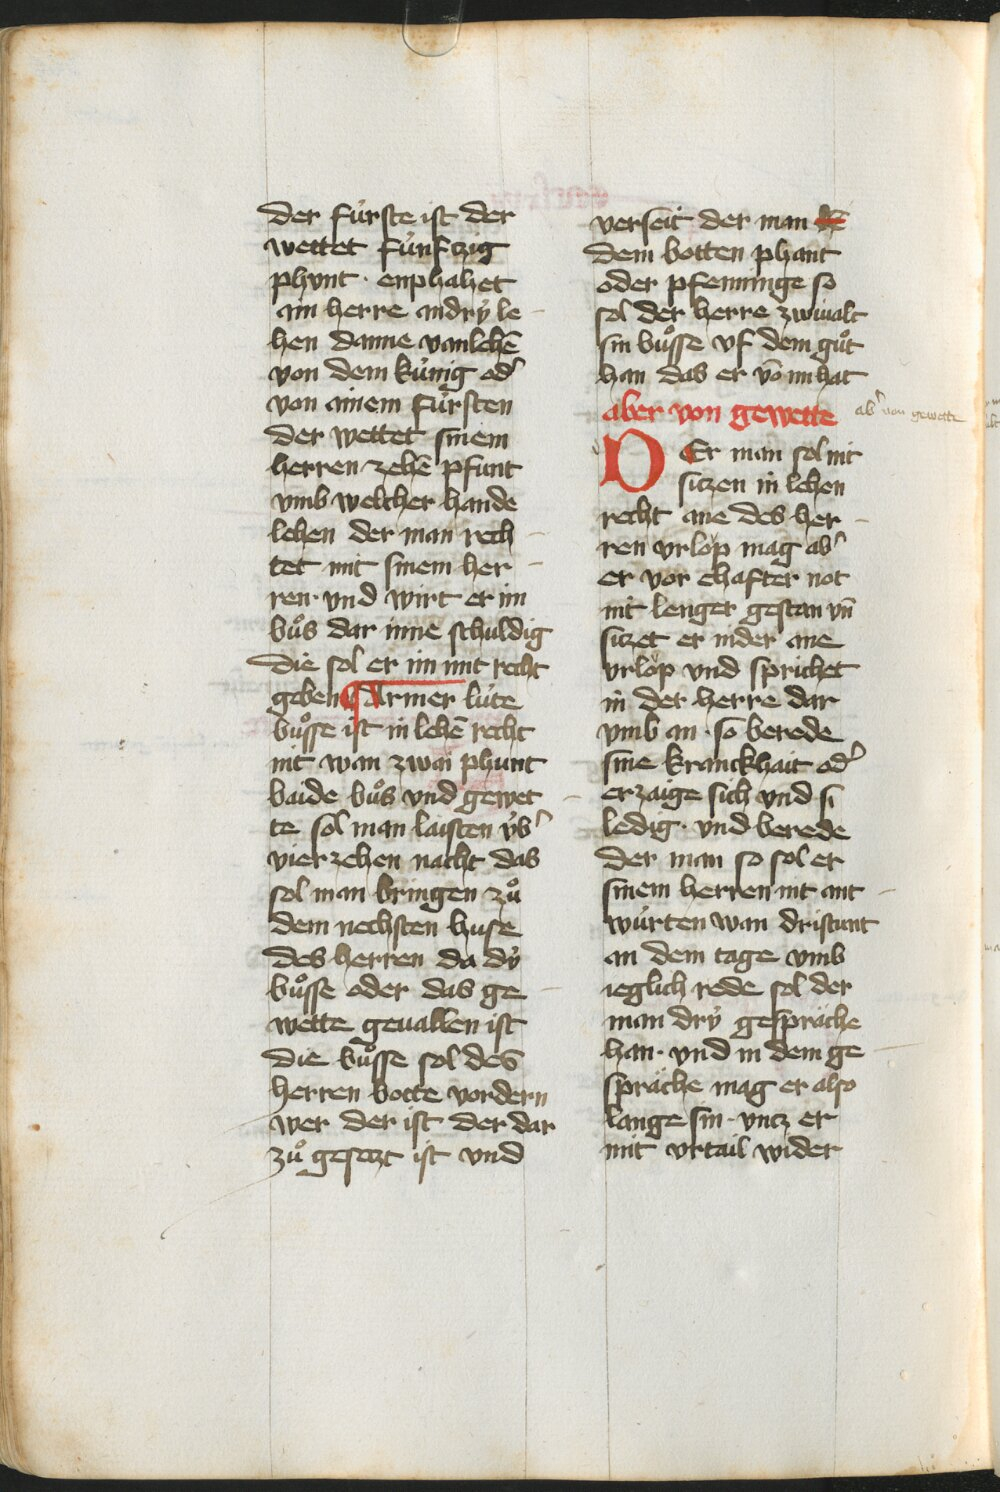 der fu̍rste ist der
wettet fu̍nftzig
phvnt · enphahet
ain herre andrẏ le
hen danne vanlehē
von dem ku̍nig odʾ
von ainem fu̍rsten
der wettet sinem
herren zehē pfunt
vmb welcher hande
lehen der man rech
tet mit sinem her
ren · vnd wirt er im
bůs dar inne schuldig
die sol er im mit recht
geben ¶ Armer lu̍te
bůsse ist in lehē recht
nit wan zwai phunt
baide bůs vnd gewet
te sol man laisten v̍bʾ
vierzehen nacht das
sol man bringen zů
dem nechsten huse
des herren da dẏ
bůsse oder das ge
wette geuallen ist
die bůsse sol des
herren botte vordern
wer der ist der dar
zů gesetzt ist vnd
verseit der man
dem botten phant
oder pfenninge so
sol der herre zwiualt
sin bůsse vf dem gůt
han das er vō im hat
aber von gewette
abʾ von gewette
DEr man sol nit
sitzen in lehen
recht ane des her
ren vrlop mag abʾ
er vor ehafter not
nit lenger gestan vn̄
sitzet er nider ane
vrlop vnd sprichet
in der herre dar
vmb an · so berede
sine kranckhait odʾ
erzaige sich vnd si
ledig · vnd berede
der man so sol er
sinem herren nit ant
wu̍rten wan dristunt
an dem tage vmb
ieglich rede sol der
man drẏ gespräche
han · vnd in dem ge
spräche mag er also
lange sin · vntz er
mit vrtail wider